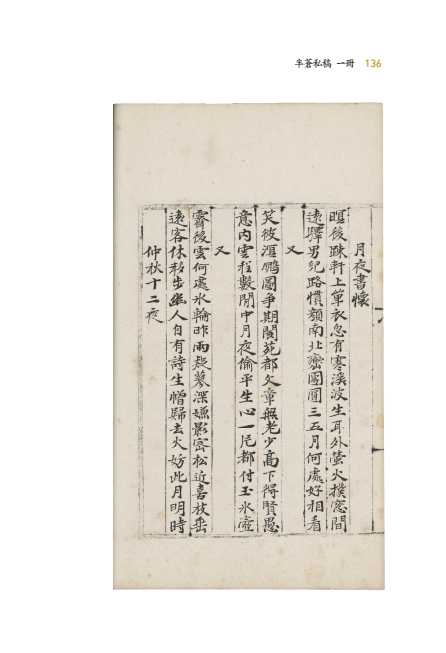 半蒼私稿 一冊 136
月夜書懷
暝後踈軒上簟衣忽有寒溪波生耳外螢火撲窓間
遠驛男兒路慣顏南北巒團圓三五月何處好相看
又
笑彼溟鵬圖爭期閬苑都文章無老少高下得賢愚
意內雲程數閒中月夜偷平生心一片都付玉氷壺
又
霽後雲何處氷輪昨雨疑蓼深蟾影密松近喜枝垂
遠客休移步幽人自有詩生憎歸去火妨此月明時
仲秋十二夜